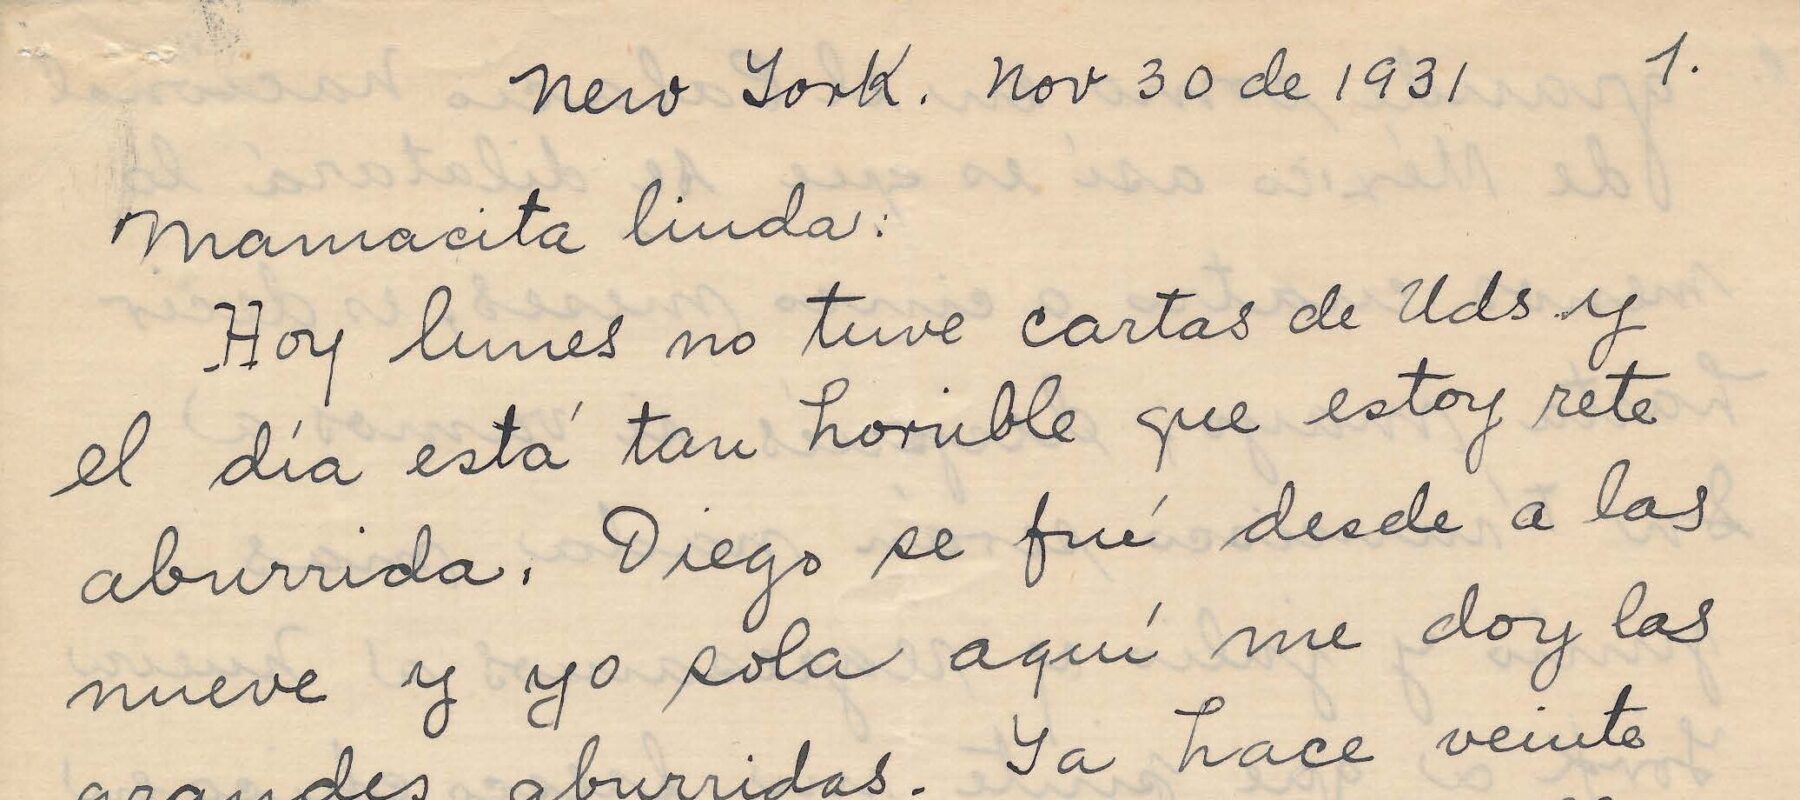 New York. Nov 30 de 1931 1.
Mamacita linda:
Hoy lunes no tuve cartas de Uds y
el día está tan horrible que estoy rete
aburrida. Diego se fué desde a las
nueve y yo sola aquí me doy las
grandes aburridas. Ya hace veinte